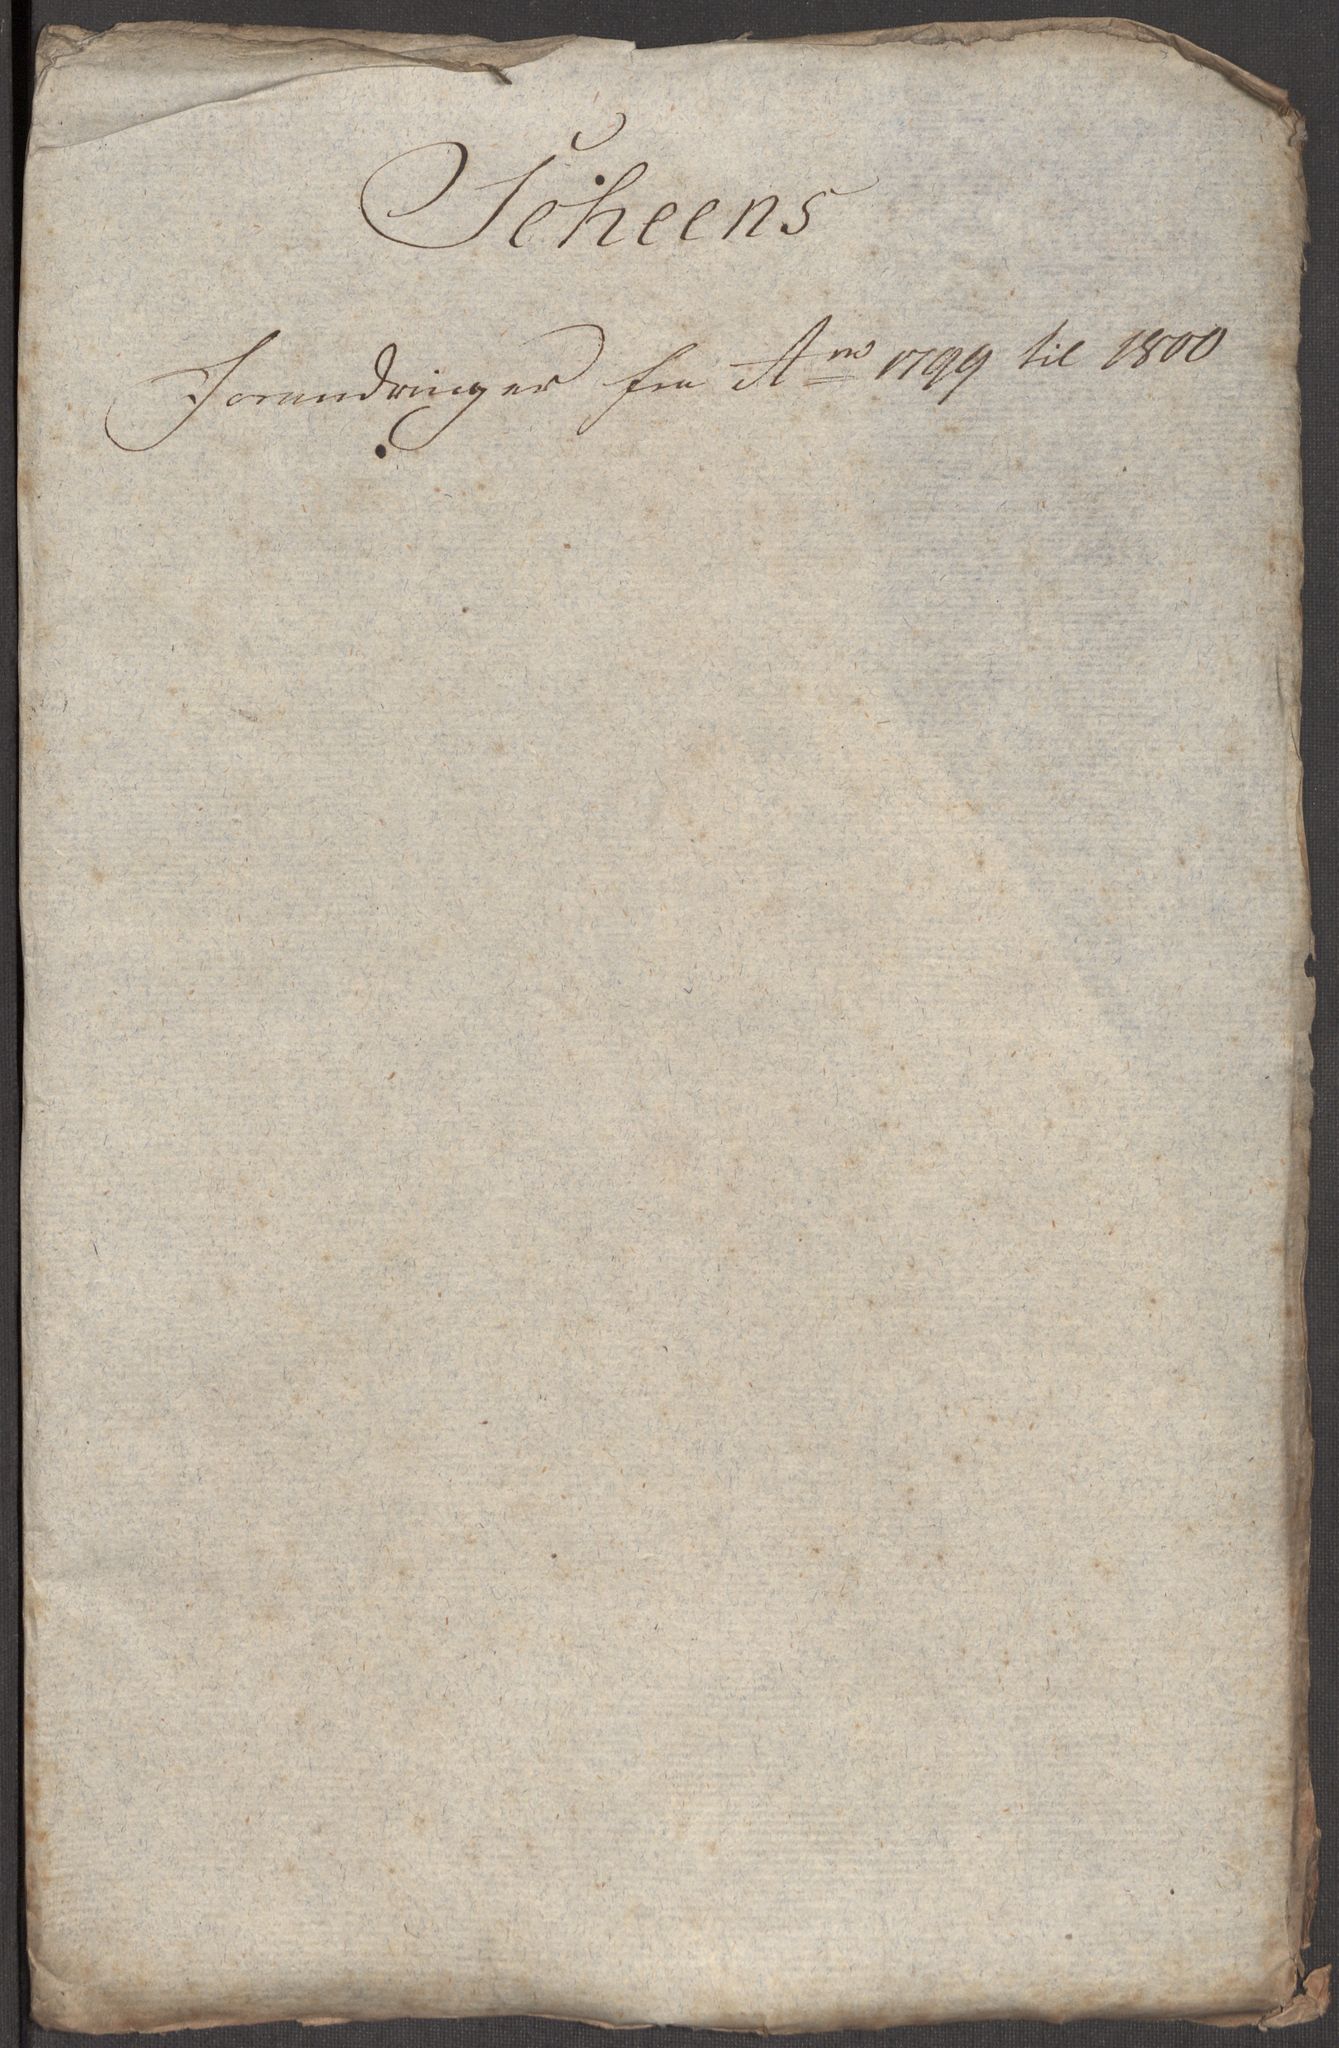 Scheens
Forandringer fra Ano 1799 til 1800